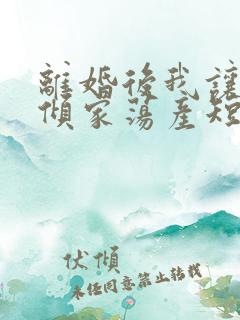 離婚後我讓
傾家蕩產短
伏傾
未经同意禁止转载